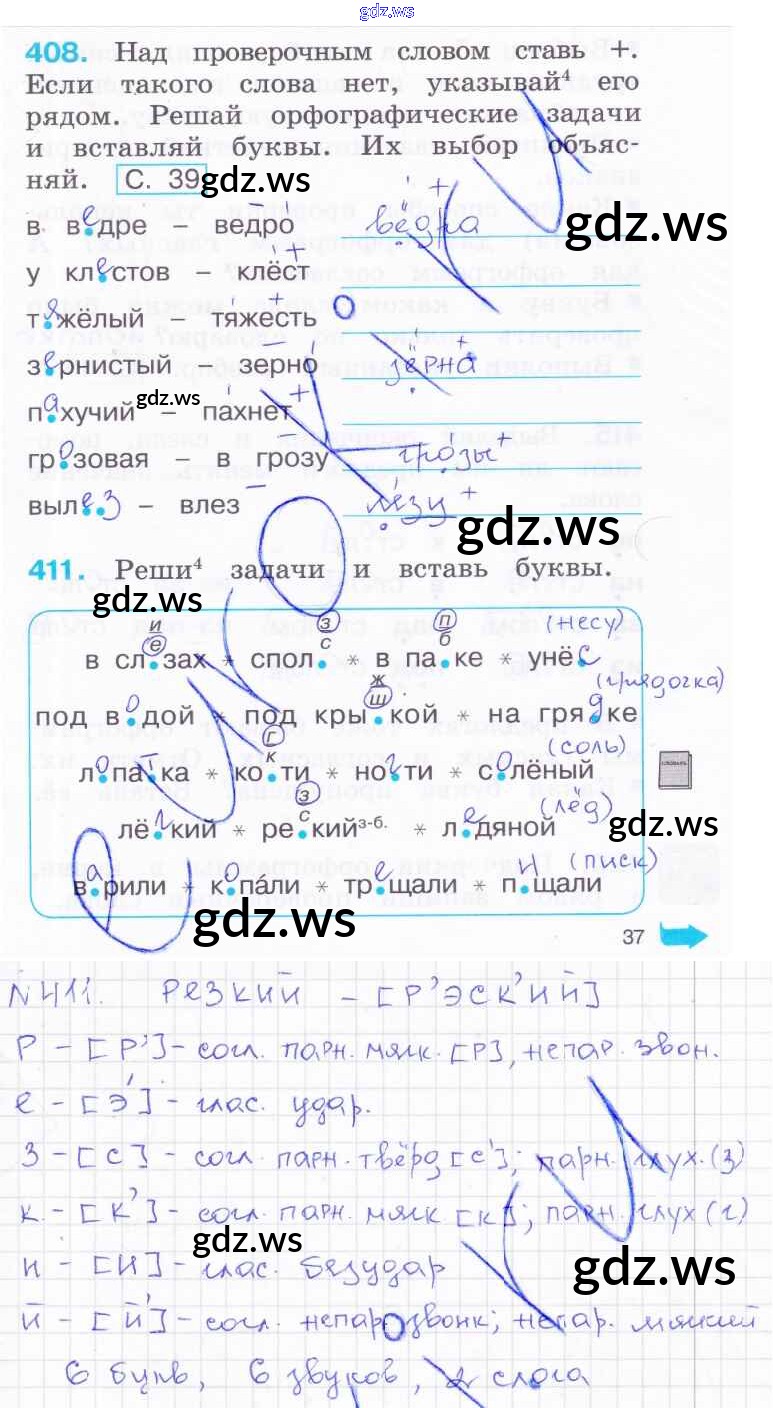 gdz.ws
408. Над проверочным словом ставь +.
Если такого слова нет, указывай⁴ его
рядом. Решай орфографические задачи
и вставляй буквы. Их выбор объяс-
няй. С. 39 gdz.ws
в ведре – ведро вёдра
gdz.ws
у клестов – клёст
тяжёлый – тяжесть
зернистый – зерно зёрна
gdz.ws
пахучий – пахнет
грозовая – в грозу грозы
вылез – влез лезу
gdz.ws
411. Реши⁴ задачи и вставь буквы.
gdz.ws
и е з с п б (несу)
в сл.зах * спол.с * в па.ке * унёс
(грядочка)
ж ш
под водой * под кры.кой * на грядке
г к (соль)
лопатка * ко.ти * ногти * солёный
СЛОВАРЬ
з с (лёд)
лёгкий * ре.кий з-б. * ледяной
gdz.ws
(писк)
варили * копа́ли * трещали * пищали
gdz.ws
37
N411. Резкий – [Р'ЭСК'ИЙ]
Р – [Р'] – согл. парн. мягк. [Р], непар. звон.
е – [Э'] – глас. удар.
З – [С] – согл. парн. твёрд [с']; парн. глух. (з)
к – [К'] – согл. парн. мягк [к]; парн. глух (г)
gdz.ws
и – [И] – глас. безудар
gdz.ws
й – [Й'] – согл. непар. звонк; непар. мягкий
6 букв, 6 звуков, 2 слога